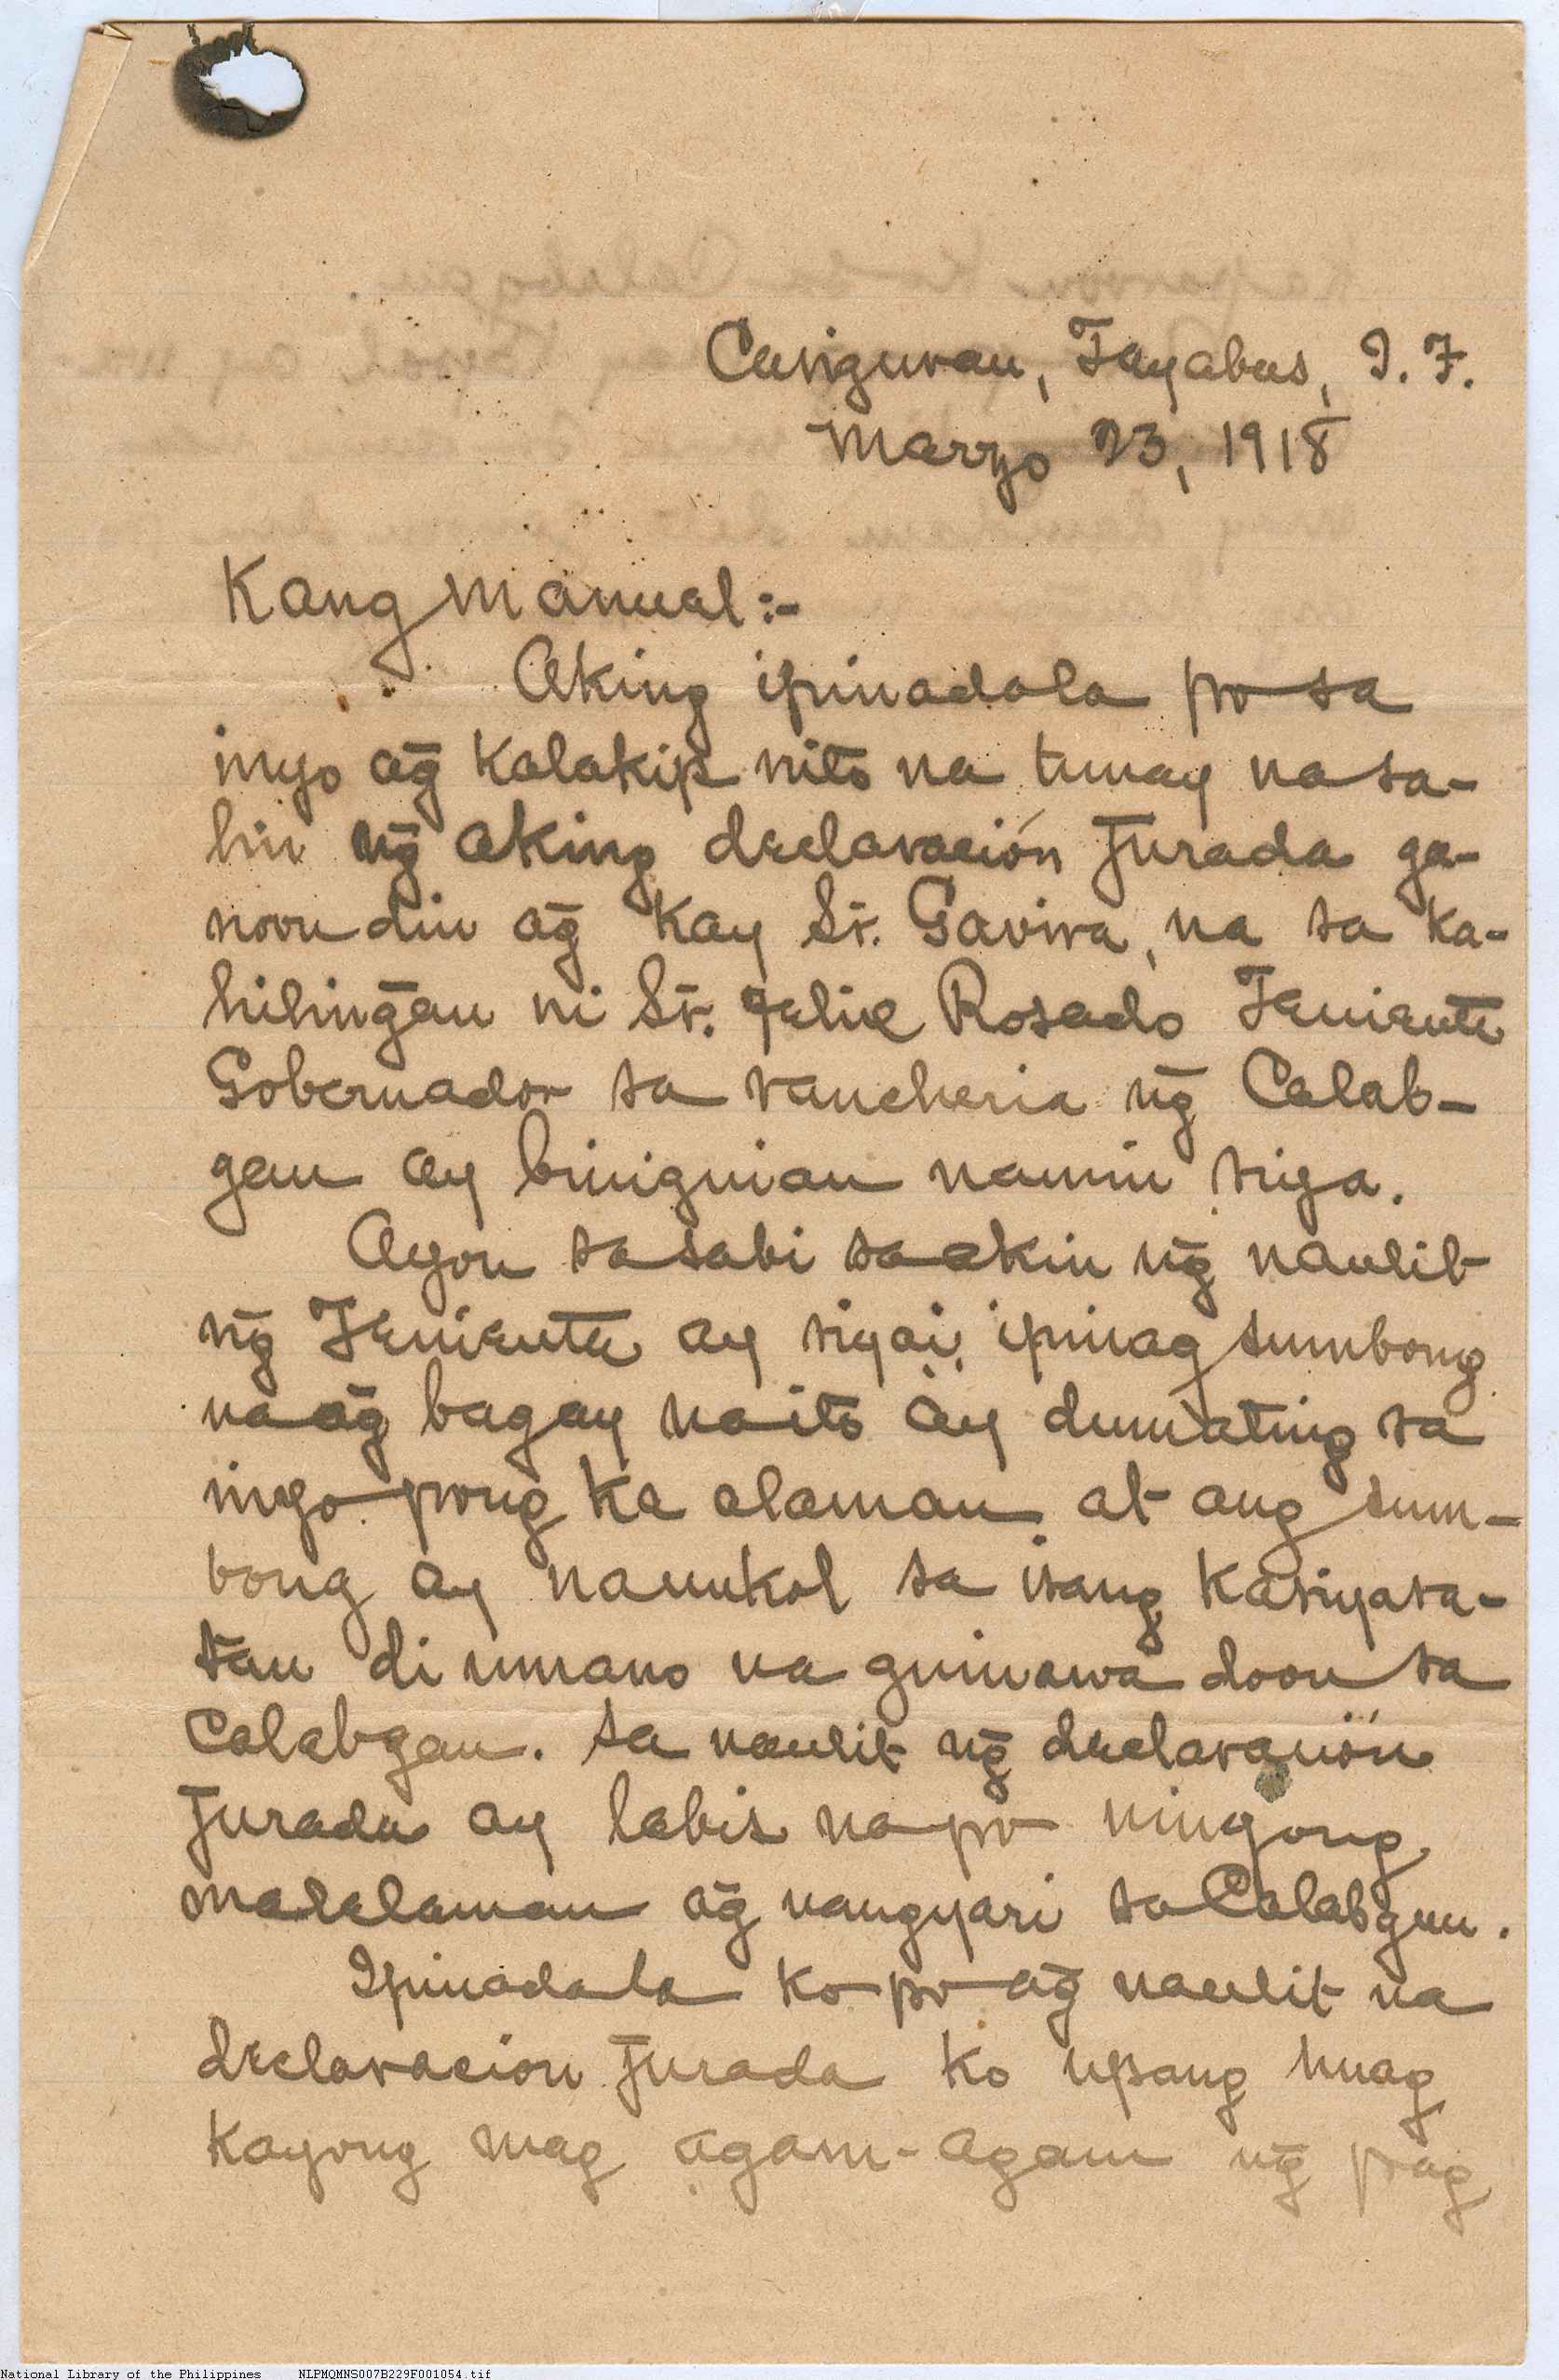 Casiguran, Tayabas, I. F.
Marzo 23, 1918
Kang Manuel:-
Aking ipinadala po sa
inyo ag̃ kalakip nito na tunay na sa-
lin ng̃ aking declaración jurada ga-
noon din ag̃ kay Sr. Gavira, na sa ka-
hiling̃an ni Sr. Felix Rosado Teniente
Gobernador sa rancheria ng̃ Calab-
gan ay biniguian namin siya.
Ayon sa sabi sa akin ng̃ naulit
ng̃ Teniente ay siyai, ipinag sumbong
na ag̃ bagay na ito ay dumating sa
inyo pong ka alaman at ang sum-
bong ay nauukol sa isang kasiyasa-
tan di umano na guinawa doon sa
Calabgan. Sa naulit ng̃ declaración
jurada ay labis na po ninyong
malalaman ag̃ nangyari sa Calabgan.
Ipinadala ko po ag̃ naulit na
declaracion jurada ko upang huag
kayong mag agam-agam ng̃ pag
National Library of the Philippines NLPMQMNS007B229F001054.tif